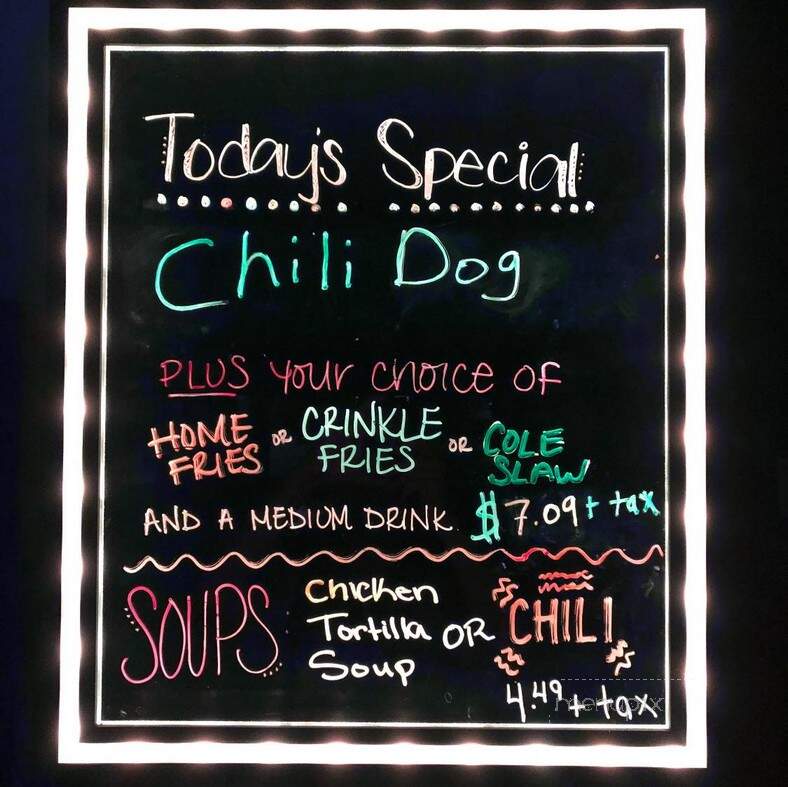 Today's Special
Chili Dog
PLUS your choice of
HOME FRIES OR CRINKLE FRIES OR COLE SLAW
AND A MEDIUM DRINK $7.09 + tax
SOUPS
Chicken
Tortilla OR CHILI
Soup
4.49 + tax